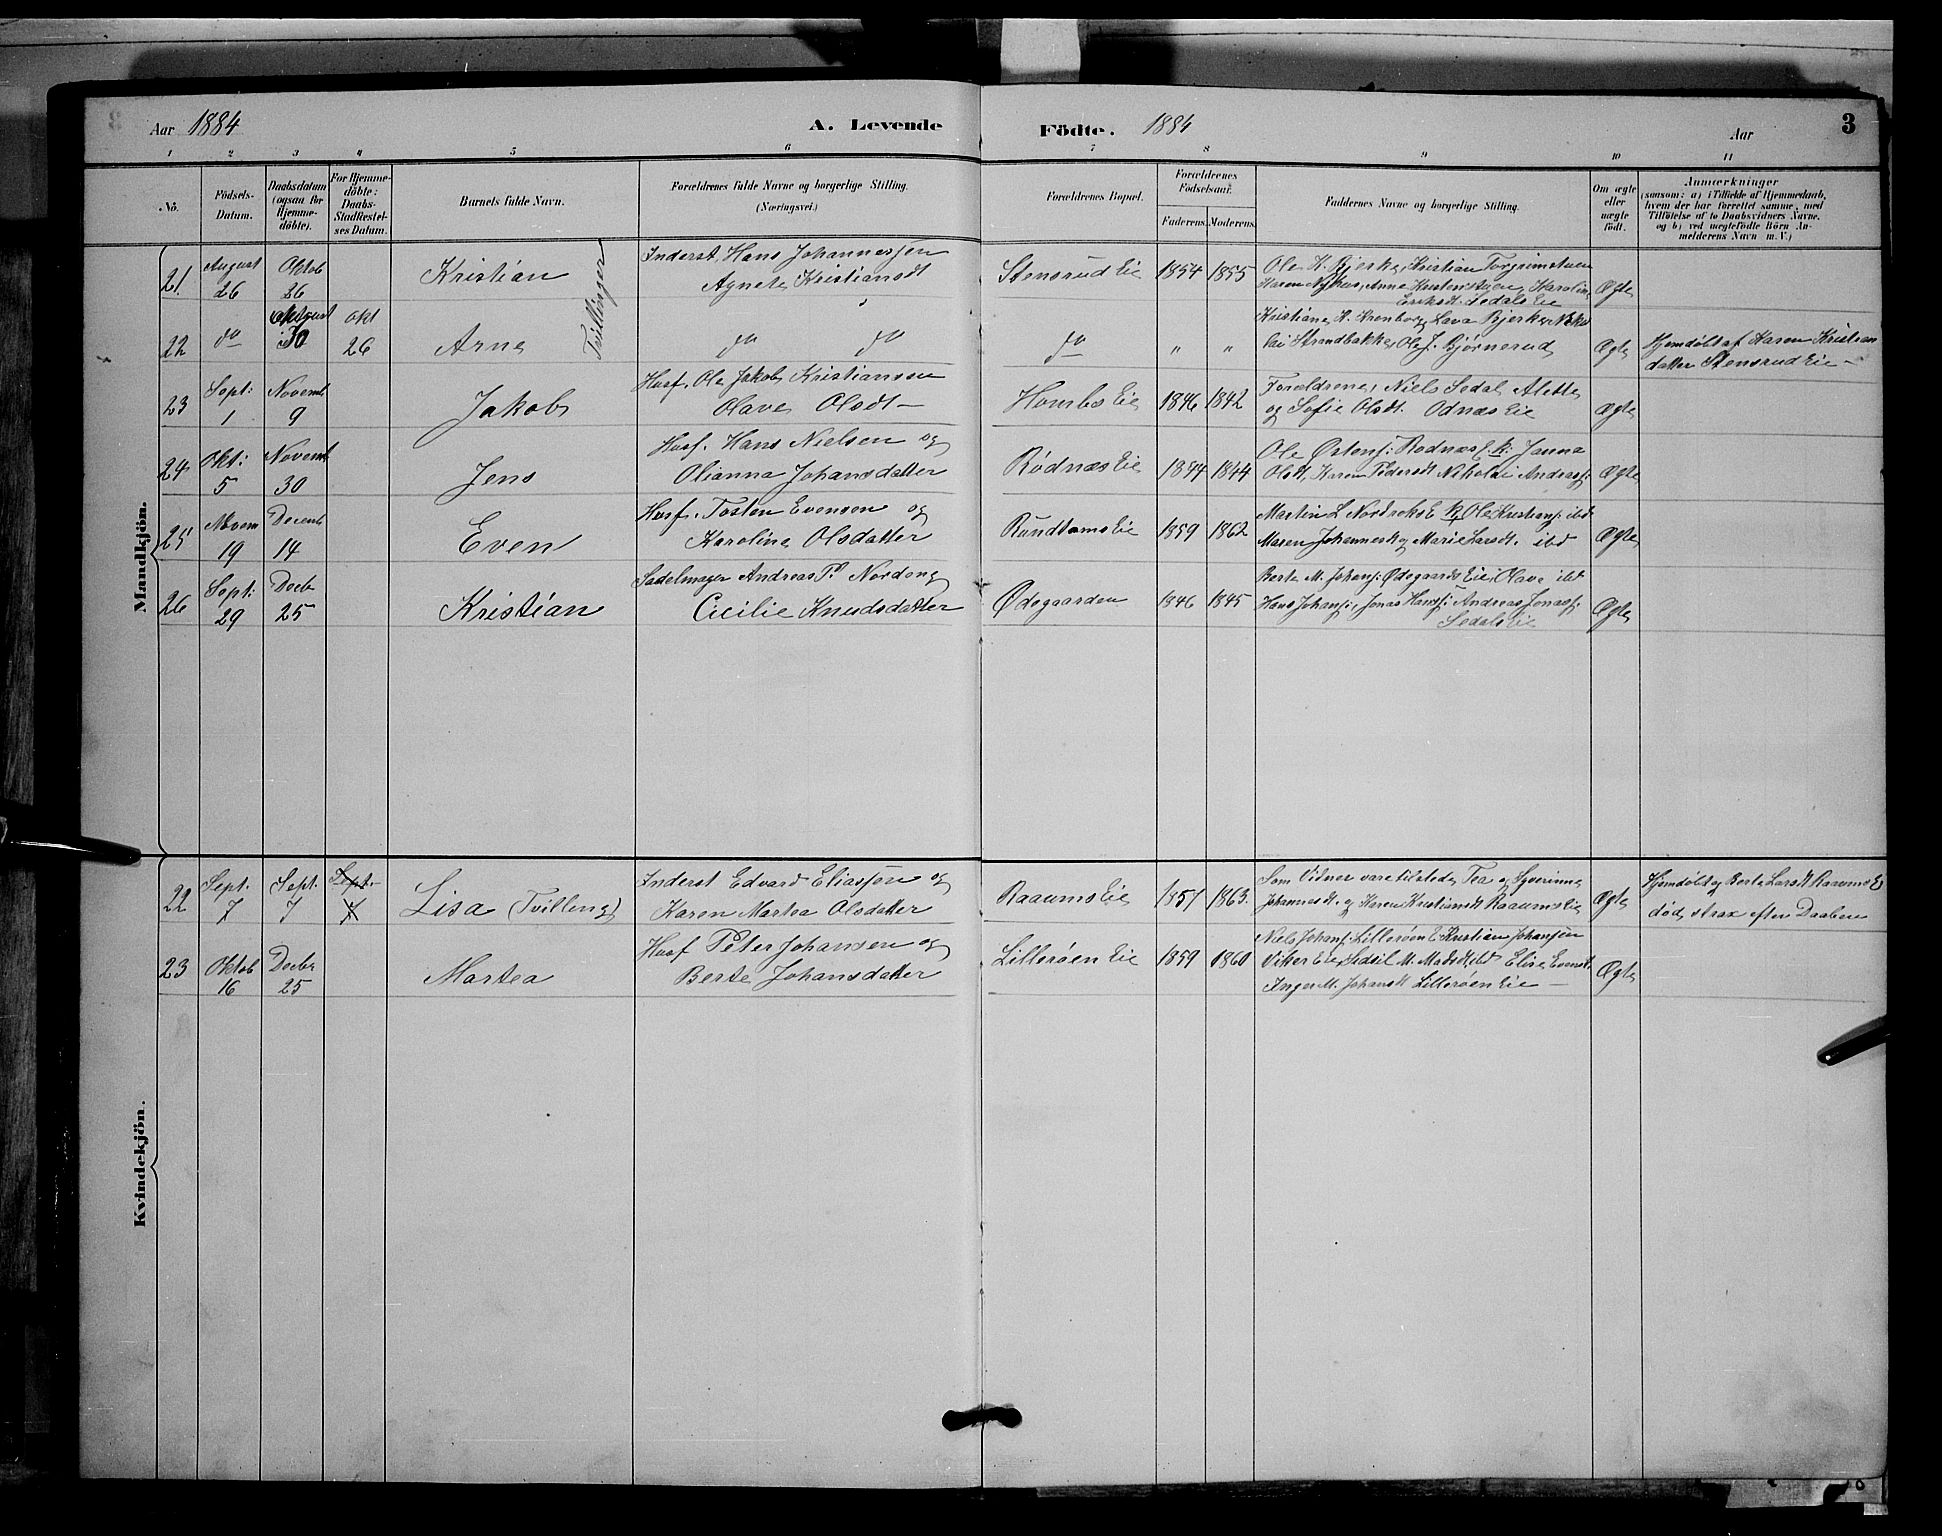 Aar 1884 A. Levende Födte. 1884 Aar 3
1 2 3 4 5 6 7 8 9 10 11
No. Födsels-Datum. Daabsdatum (ogsaa for Hjemme-döbte). For Hjemme-döbte: Daabs-Stadfæstel-ses Datum. Barnets fulde Navn. Forældrenes fulde Navne og borgerlige Stilling. (Næringsvei.) Forældrenes Bopæl. Forældrenes Födselsaar. Faderens. Moderens. Faddernes Navne og borgerlige Stilling. Om ægte eller uægte födt. Anmærkninger
(saasom: a) i Tilfælde af Hjemmedaab,
hvem der har forrettet samme, med
Tilföielse af to Daabsvidners Navne.
og b) ved uægtefödte Börn An-
melderens Navn m. V.)
Mandkjön.
21. August 26 Oktob 26 Kristian Tvillinger
Inderst Hans Johannessen
Agnete Kristiansdt
Stensrud Eie 1854 1855
Ole K. Bjerke, Kristian Torgrimstuen
Karen Nyhus, Anne Kristenstuen, Karoline
Eriksdt. Sedals Eie
Ægte
22 do 30 Okt 26 Arne
do do
do " "
Kristiane H. Kronborg, Lava Bjerke, Niko
lai Strandbakke, Ole J. Bjørnerud
Ægte
Hjemdøbt af Karen Kristian
datter Stensrud Eie —
23 Sept: 1 Novemb 9 Jakob
Husf. Ole Jakob Kristiansen
Olave Olsdt —
Hombs Eie 1846 1842
Forældrene, Niels Sedal Alette
og Sofie Olsdt. Odnæs Eie
Ægte
24 Okt: 5 Novemb 30 Jens
Husf. Hans Nielsen og
Olianna Johansdatter
Rødnæs Eie 1844 1844
Ole Østensf: Rodnæs E. k: Janna
Olsdt, Karen Pedersdt Nikolai Andreasf:
Ægte
25 Novem 19 Decemb 14 Even
Husf. Tosten Evensen og
Karoline Olsdatter
Rundtoms Eie 1859 1862
Martin L Nordroks E k, Ole Kristiansf: ibd
Maren Johannesdt og Marie Larsdt. ibd
Ægte
26 Sept: 29 Decbr 25 Kristian
Sadelmager Andreas P. Nordeng
Cecilie Knudsdatter
Ødegaarden 1846 1845
Berte M. Johansf: Ødegaards Eie, Olave ibd
Hans Johansf:, Jonas Hansf: Andreas Jonasf:
Sedals Eie
Ægte
Kvindekjön.
22 Sept. 7 Sept. 7 Sept. 7 Lisa (Tvilling)
Inderst Edvard Eliassen og
Karen Martea Olsdatter
Raaums Eie 1857 1863.
Som Vidner vare tilstede, Tea og Syverine
Johannesdt. og Karen Kristiansdt Raaums Eie
Ægte
Hjemdøbt og Berte Larsdt Raaums E
død strax efter Daaben
23 Oktob 16 Decbr 25 Martea
Husf Peter Johansen og
Berte Johansdatter
Lillerøen Eie 1859 1860
Niels Johansf: Lillerøen E Kristian Johansen
Viker Eie, Sidsil M. Madsdt, ibd Elise Evensdt
Inger M. Johansdt Lillerøen Eie —
Ægte